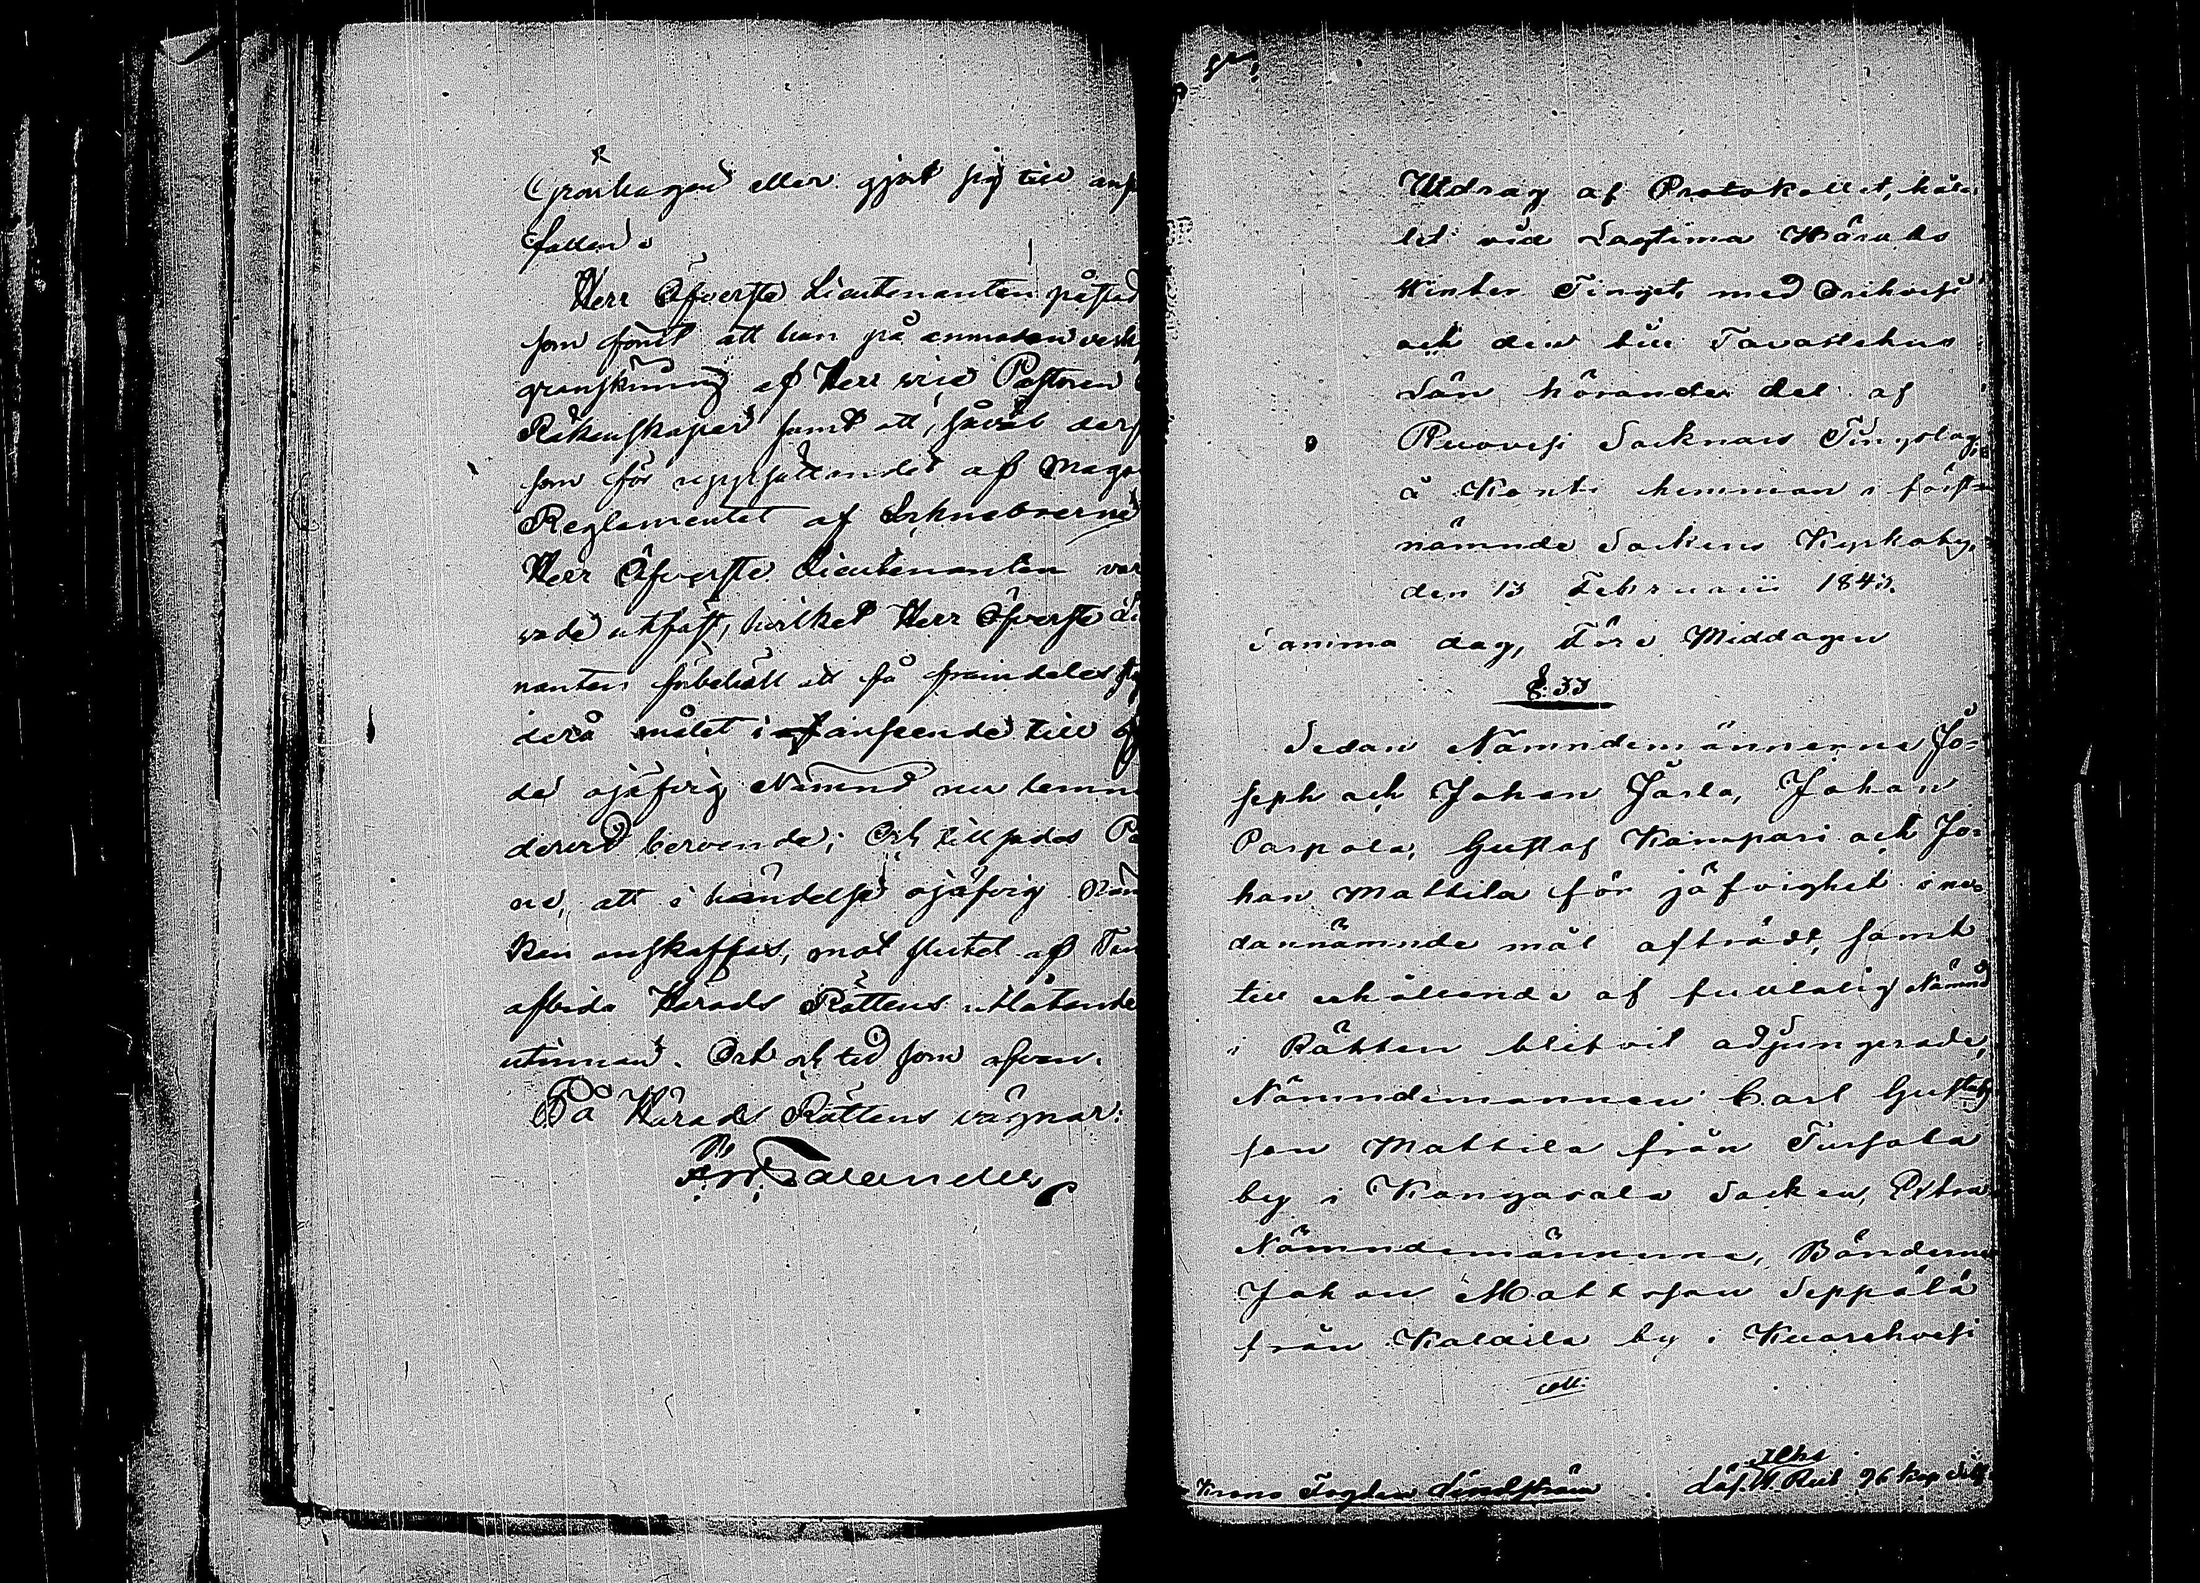 Grönhagen eller gjort sig till
fallen.
Herr Öfverste Lieutenanten påstod
som förut att han på
granskning af Herr vice Pastoren
Räkenskaper samt att, såväl
som för uppsättandet af Maga
Reglementet af Sockneboerne
Herr Öfverste Lieutenanten var
vade utfäst, hvilket Herr Öfverste Li
nanten förbehöll att få framdeles
målet i anseende till
de ojäfvig Nämnd nu lemn
beroende; Och tillsades Pa
ne, att i händelse ojäfvig Näm
kan anskaffas, mot slutet af Tin
afbida Härads Rättens utlåtande
utinnan. Ort och tid som ofvan.
På Härads Rättens vägnar:
Utdrag af Protokollet, hål
let vid Lagtima Härads
Winter Tinget med Orihvesi
och den till Tavastehus
Län hörande del af
Ruovesi Socknars Tingslag,
å Konti hemman i först
nämnde Sockens Kyrkoby,
den 13 Februarii 184
Samma dag, Före Middagen
§. 33
Sedan Nämndemännerne Jo-
seph och Johan Järla, Johan
Parpala, Gustaf Kampari och Jo-
han Mattila för jäfvighet i ne-
dannämnde mål afträdt, samt
till erhållande af fulltalig Nämnd
i Rätten blifvit adjungerade,
Nämndemannen Carl Gustafs
son Mattila från Tursola
by i Kangasala Socken, Extra
Nämndemännerne, Bönderne
Johan Mattsson Seppälä
från Kalaila by i Kuorehvesi
coll:
Krono Fogden Lindström
Lös. R:bl 96 kop. Silf